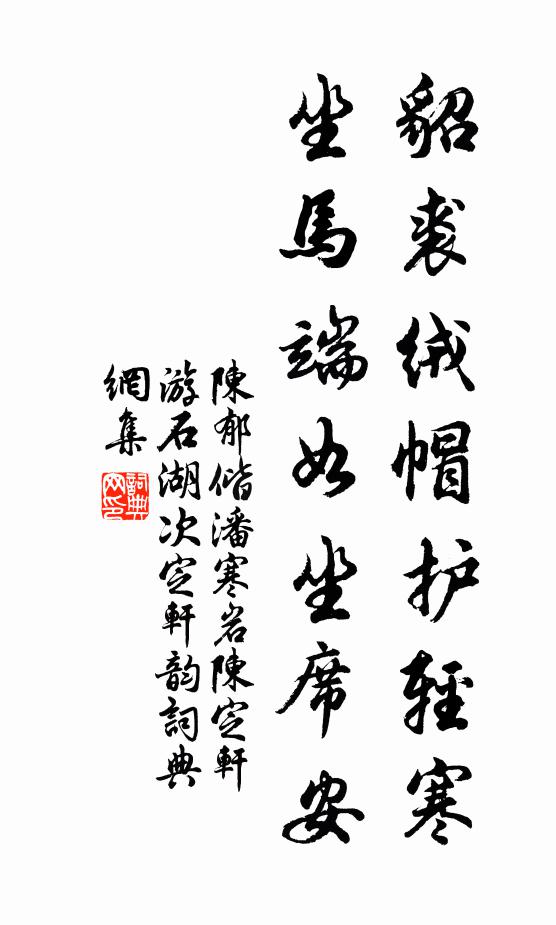 貂裘绒帽护輕寒
坐馬端如坐席安
陳郁偕潘寒岩陳定軒
游石湖次定軒韵詞典
網集
詞典
网印